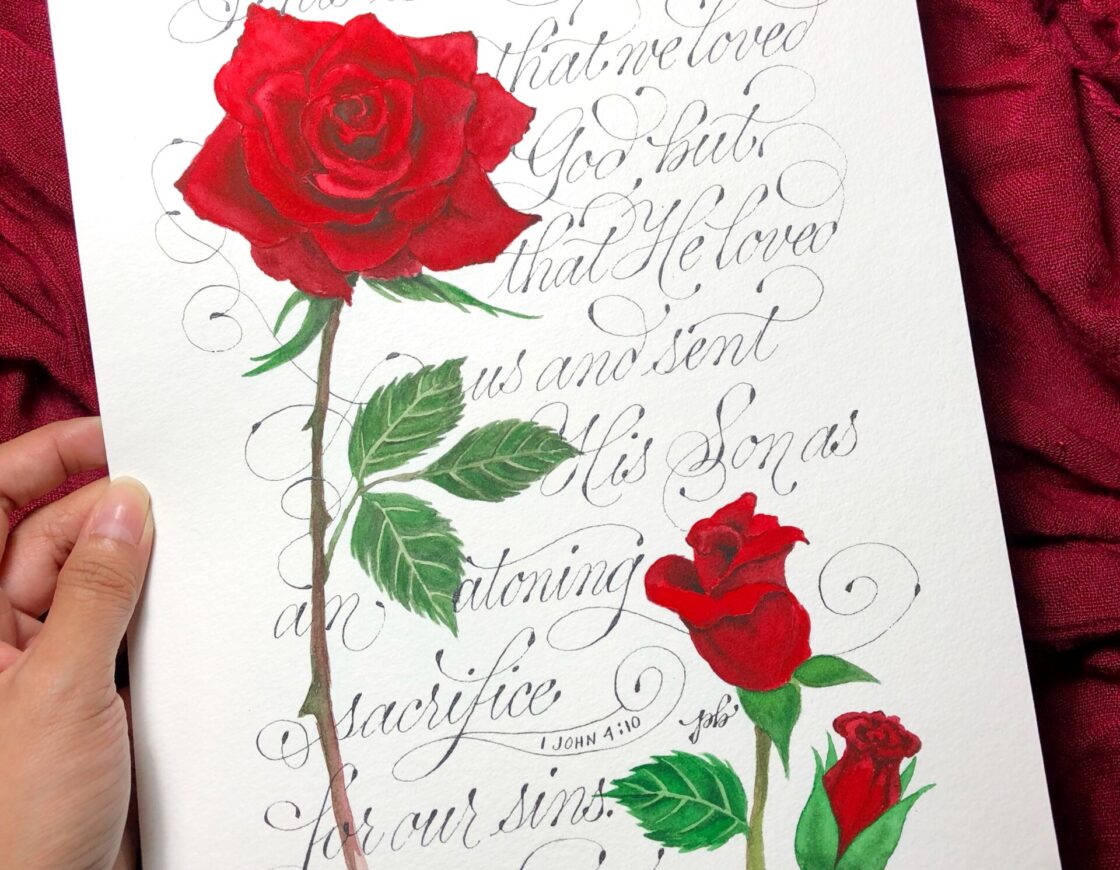 that we loved
God but
that He loved
us and sent
His Son as
an atoning
sacrifice
1 JOHN 4:10
pb
for our sins.